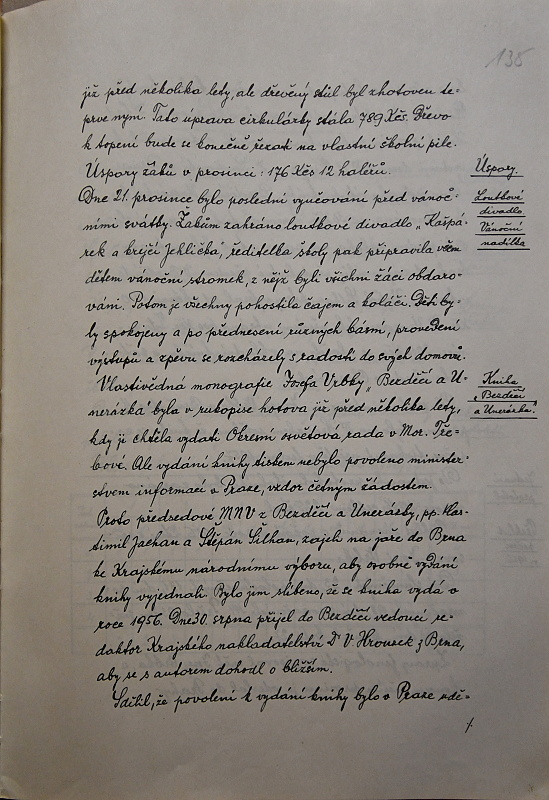 135
již před několika lety, ale dřevěný stůl byl zhotoven te-
prve nyní. Tato úprava cirkulárky stála 789 Kčs. Dřevo
k topení bude se konečně řezati na vlastní školní pile.
Úspory žáků v prosinci: 176 Kčs 12 haléřů.
Úspory.
Dne 21. prosince bylo poslední vyučování před vánoč-
Loutkové
divadlo
ními svátky. Žákům zahráno loutkové divadlo „Kašpá-
Vánoční
nadílka
rek a krejčí Jehlička", ředitelka školy pak připravila všem
dětem vánoční stromek, z nějž byli všichni žáci obdaro-
váni. Potom je všechny pohostila čajem a koláči. Děti by-
ly spokojeny a po přednesení různých básní, provedení
výstupů a zpěvu se rozcházely s radostí do svých domovů.
Vlastivědná monografie Josefa Vrbky „Bezděčí a U-
Kniha
„Bezděčí
a Unerázka".
nerázka" byla v rukopise hotova již před několika lety,
kdy ji chtěla vydati Okresní osvětová rada v Mor. Tře-
bové. Ale vydání knihy tiskem nebylo povoleno minister-
stvem informací v Praze, vzdor četným žádostem.
Proto předsedové MNV z Bezděčí a Unerázky, pp. Vlas-
timil Jachan a Štěpán Silhan, zajeli na jaře do Brna
ke Krajskému národnímu výboru, aby osobně vydání
knihy vyjednali. Bylo jim slíbeno, že se kniha vydá v
roce 1956. Dne 30. srpna přijel do Bezděčí vedoucí re-
daktor Krajského nakladatelství Dr V. Hrousek z Brna,
aby se s autorem dohodl o bližším.
Sdělil, že povolení k vydání knihy bylo v Praze udě-